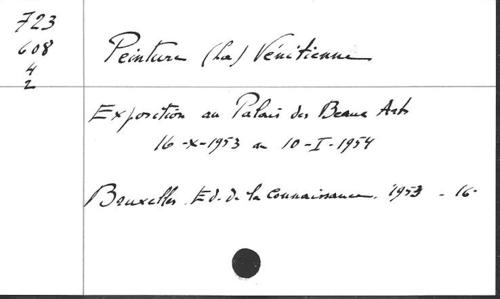 723
608
4
2
Peinture (La) Vénitienne
Exposition au Palais des Beaux Arts
16-X-1953 au 10-I-1954
Bruxelles. Ed. de la Connaissance. 1953 - 16-